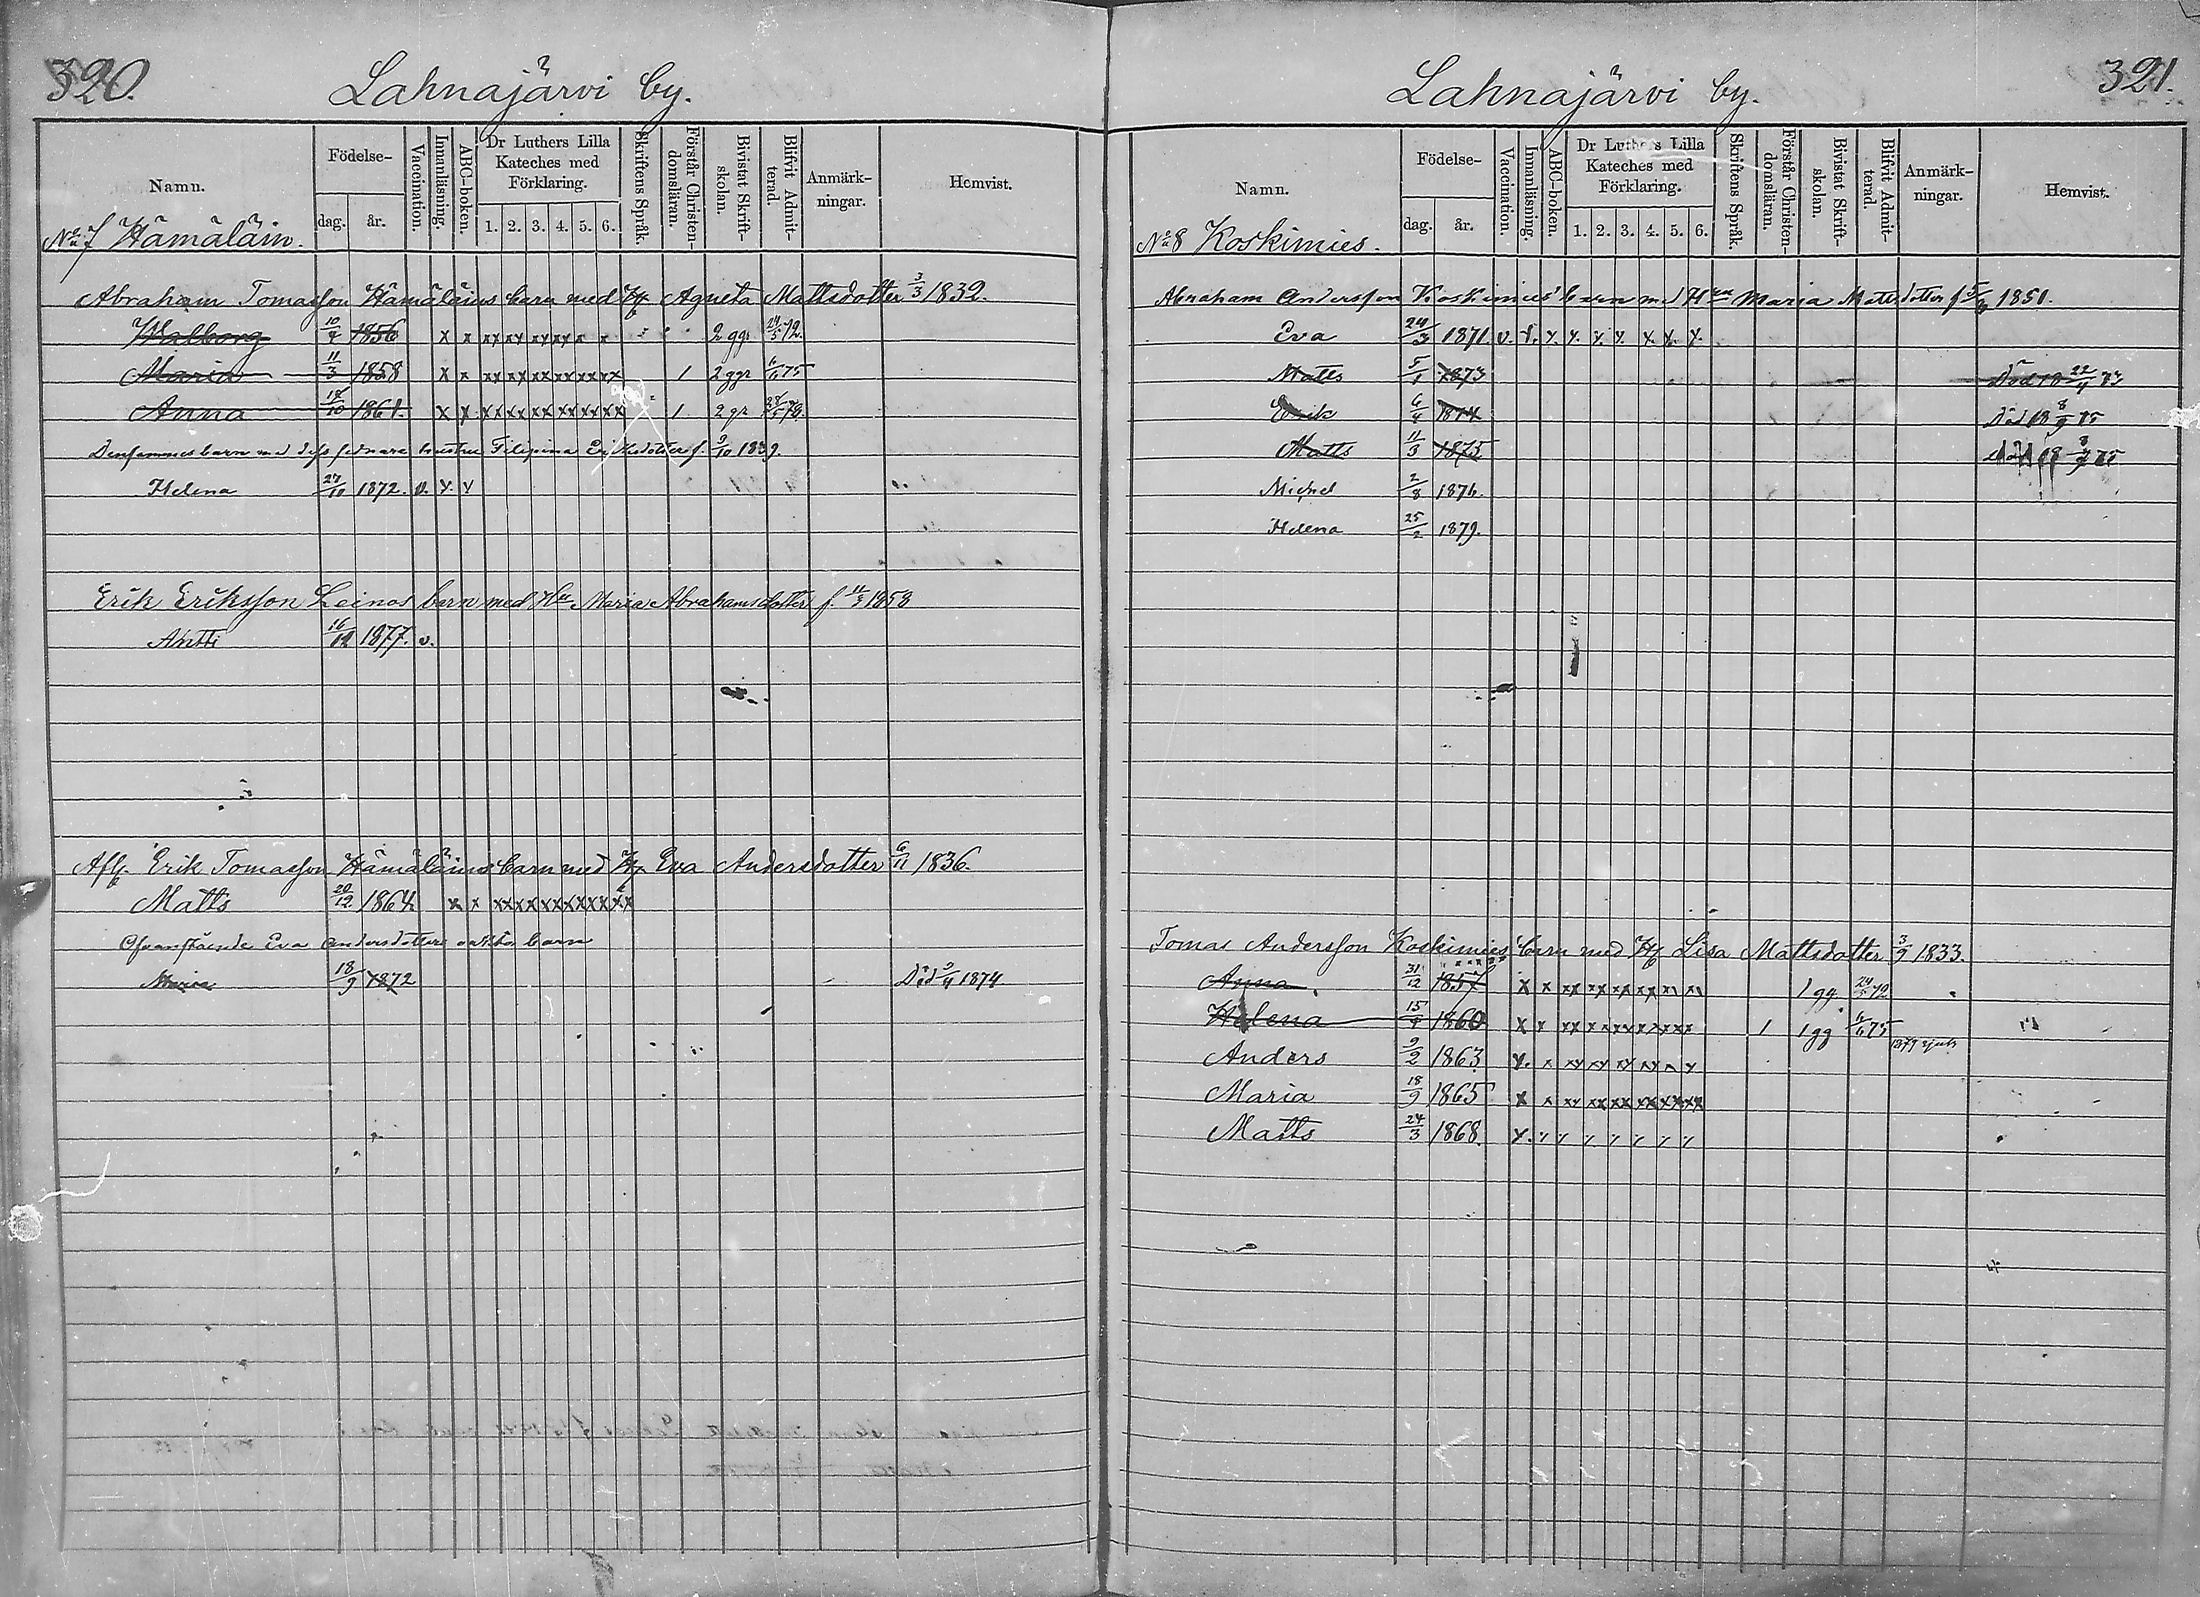 320.
Lahnajärvi by.
Namn.
Födelse-
dag.
år.
Vaccination.
Innanläsning.
ABC-boken.
Dr Luthers Lilla
Kateches med
Förklaring.
1. 2. 3. 4. 5. 6.
Skriftens Språk.
Förstår Christen-
domsläran.
Bivistat Skrift-
skolan.
Blifvit Admit-
terad.
Anmärk-
ningar.
Hemvist.
No 7 Hämäläin.
Abraham Tomasson Hämäläins barn med H Agneta Mattsdotter 3/3 1832.
Walborg 10/4 1856 x x xx xx xx xx x x 2 ggr 24/5 72.
Maria 11/3 1858 x x xx xx xx xx xx xx 1 2 ggr 6/6 75
Anna 1861. x x xx xx xx xx xx xx 1 2 gr
barn med dess hustru Filipina f. 9/10 1839.
Helena 27/10 1872. v. x. x
Erik Eriksson Leinos barn med Hu Maria Abrahamsdotter f. 11/3 1858
Antti 16/12 1877. v.
Afl. Erik Tomasson Hämäläins barn med H Eva Andersdotter 6/11 1836.
Matts 20/12 1864 x x xx xx xx xx xx xx
Ofvanstående Eva Andersdotters oäkta barn
Maria 18/9 1872 Död 9/4 1874.
321.
Lahnajärvi by.
Namn.
Födelse-
dag.
år.
Vaccination.
Innanläsning.
ABC-boken.
Dr Luthers Lilla
Kateches med
Förklaring.
1. 2. 3. 4. 5. 6.
Skriftens Språk.
Förstår Christen-
domsläran.
Bivistat Skrift-
skolan.
Blifvit Admit-
terad.
Anmärk-
ningar.
Hemvist.
No 8 Koskimies.
Abraham Andersson Koskimies' barn med Hru Maria Mattsdotter f 1851.
Eva 24/3 1871. v. x. x. x. x. x. x. x. x.
Matts 5/1 1873 Död 22/4 73
Erik 6/4 1874 Död 8/9 75
Matts 11/3 1875 Död 8/9 75
Michel 2/8 1876.
Helena 25/2 1879.
Tomas Andersson Koskimies' barn med H Lisa Mattsdotter 3/9 1833.
Anna 31/12 1857 x x xx xx xx xx xx xx 1 gg 24/5 72
Helena 15/4 1860 x x xx xx xx xx xx xx 1 1 gg 6/6 75
Anders 9/2 1863 x. x xx xx xx xx x x
Maria 18/9 1865 x x xx xx xx xx xx xx
Matts 24/3 1868. x. x x x x x x x